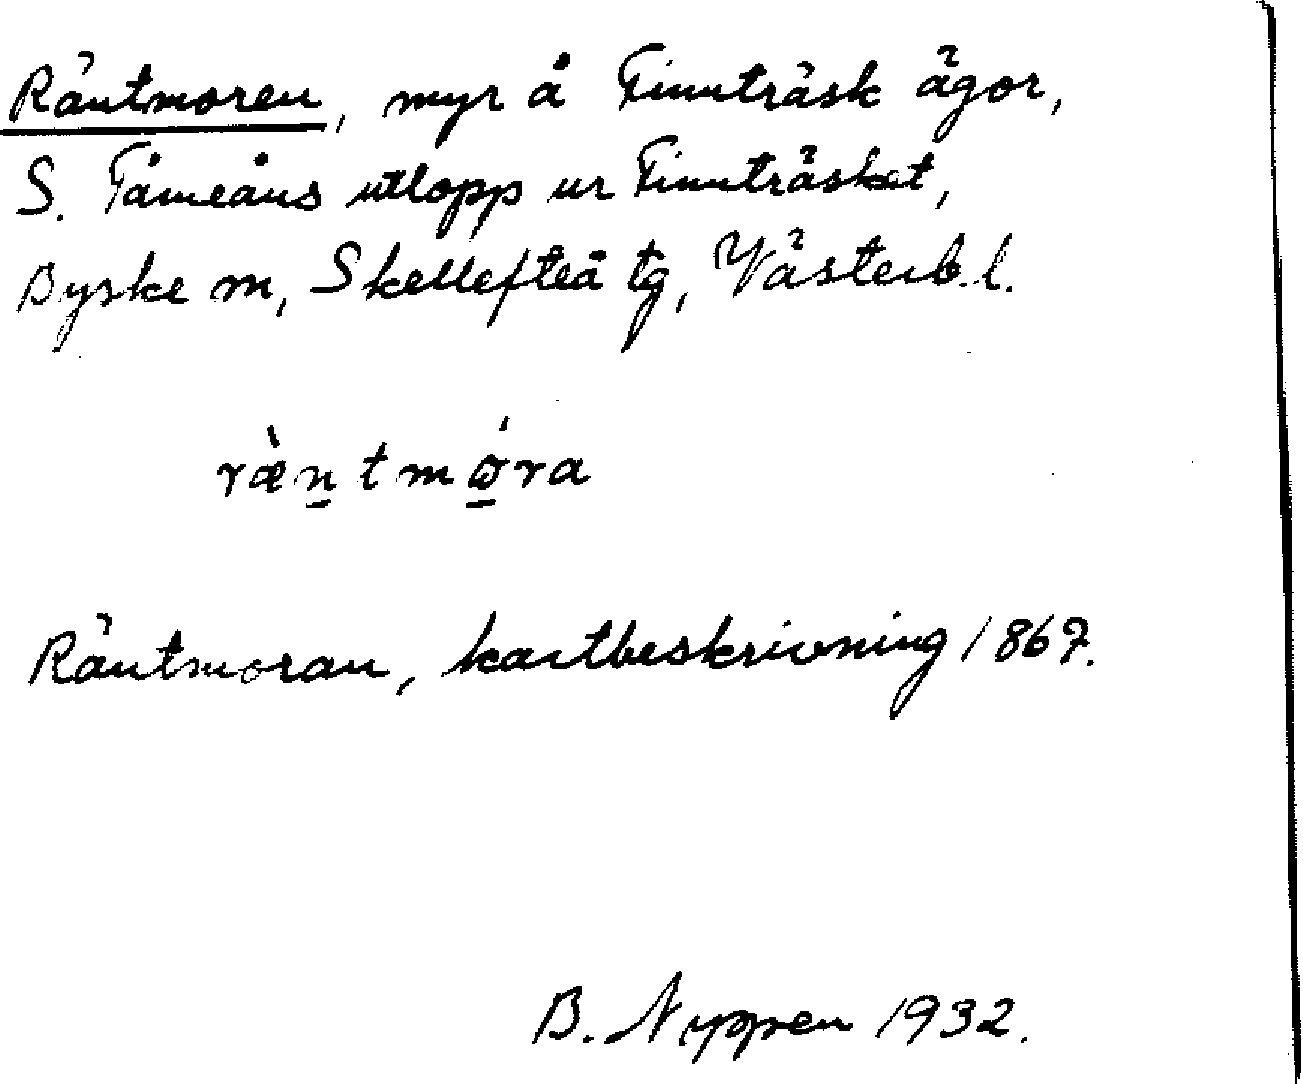 Räntmoren, myr å Finnträsk ägor,
S. Tåmeåns utlopp ur Finnträsket,
Byske sn, Skellefteå tg, Västerb. l.
ræ̀n̠tmώ̠ra
Räntmoran, kartbeskrivning 1867.
B. Nyppen 1932.